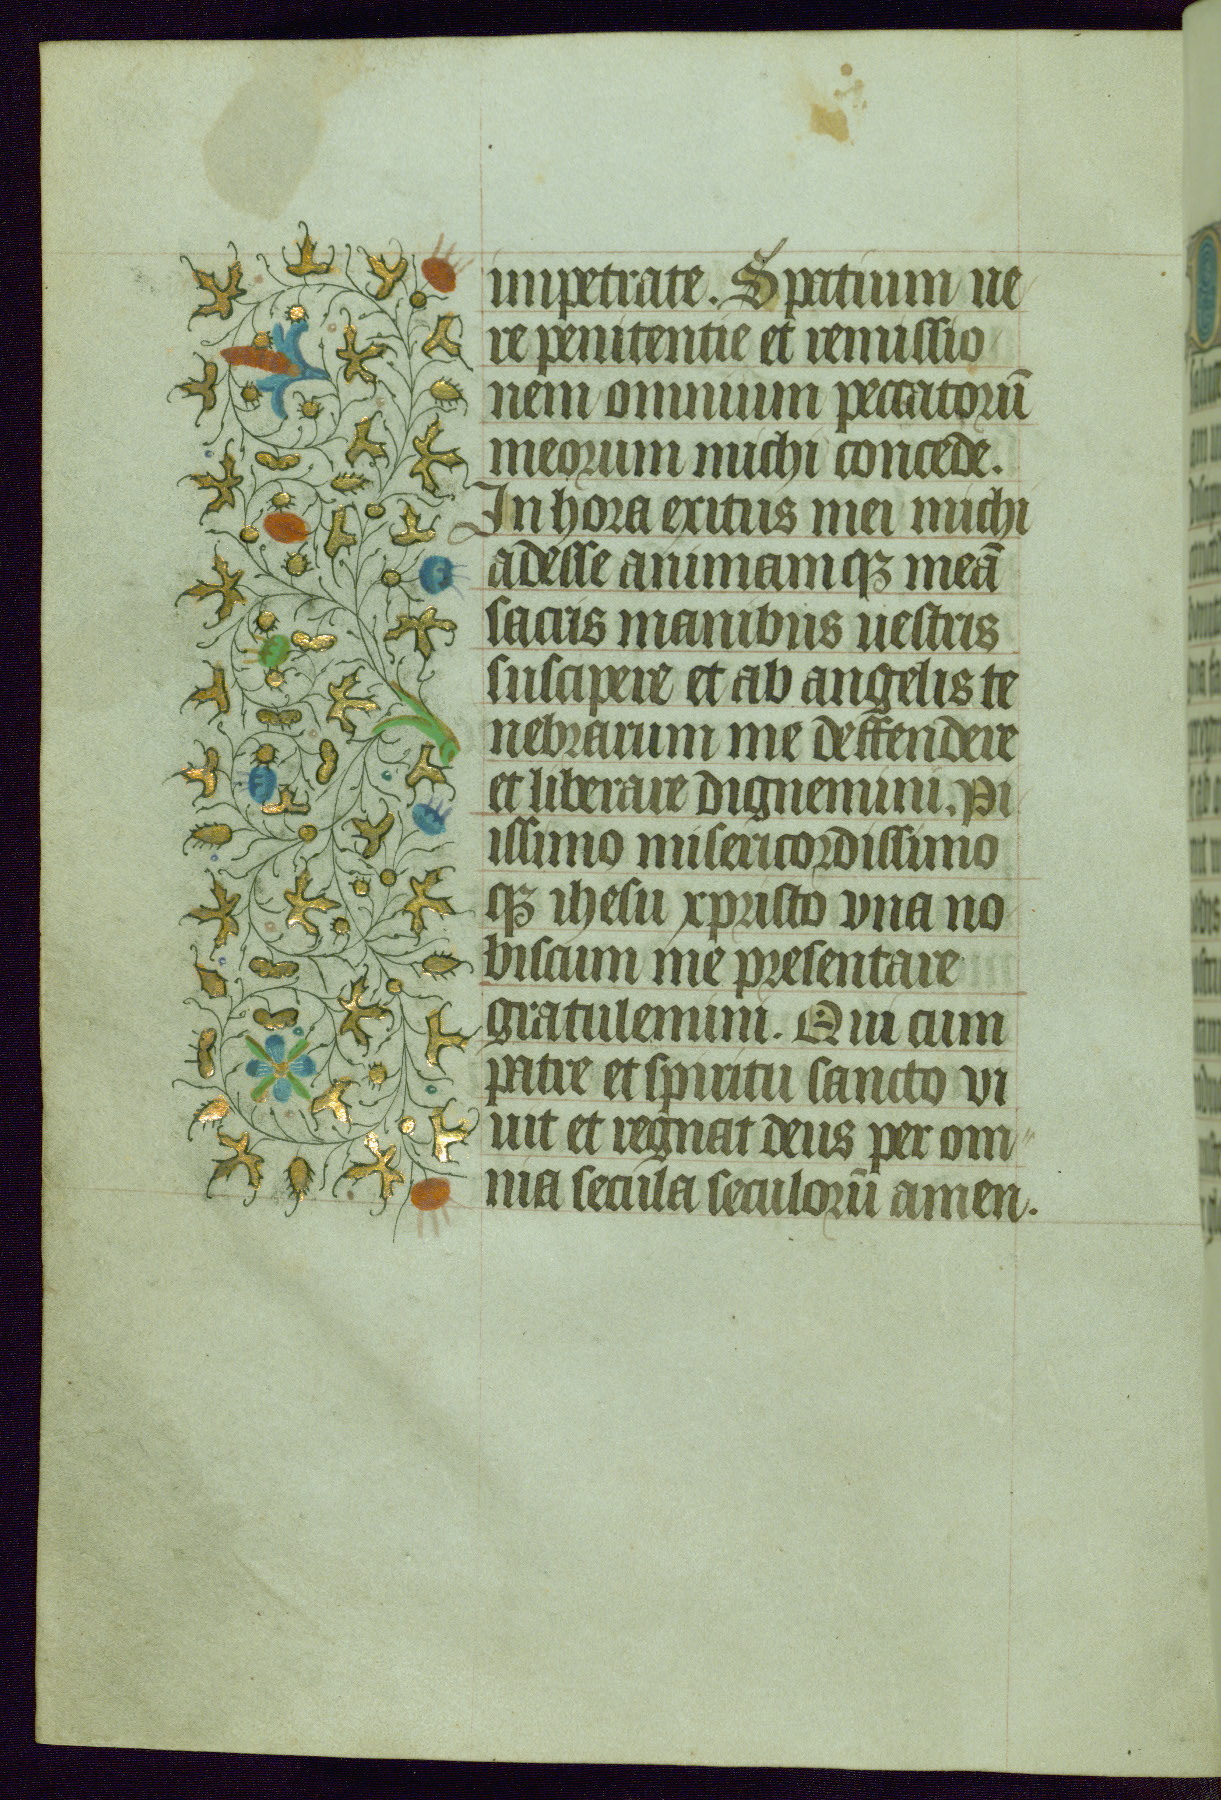 impetrate. Spatium ue
re penitentie et remissio
nem omnium peccatorū
meorum michi concede.
In hora exitus mei michi
adesse animamqꝫ meā
sacris manibus uestris
suscipere et ab angelis te
nebrarum me deffendere
et liberare dignemini. Pi
issimo misericordissimo
qꝫ ihesu xpristo vna no
biscum me presentare
gratulemini. Qui cum
patre et spiritu sancto vi
uit et regnat deus per om
nia secula seculorū amen.